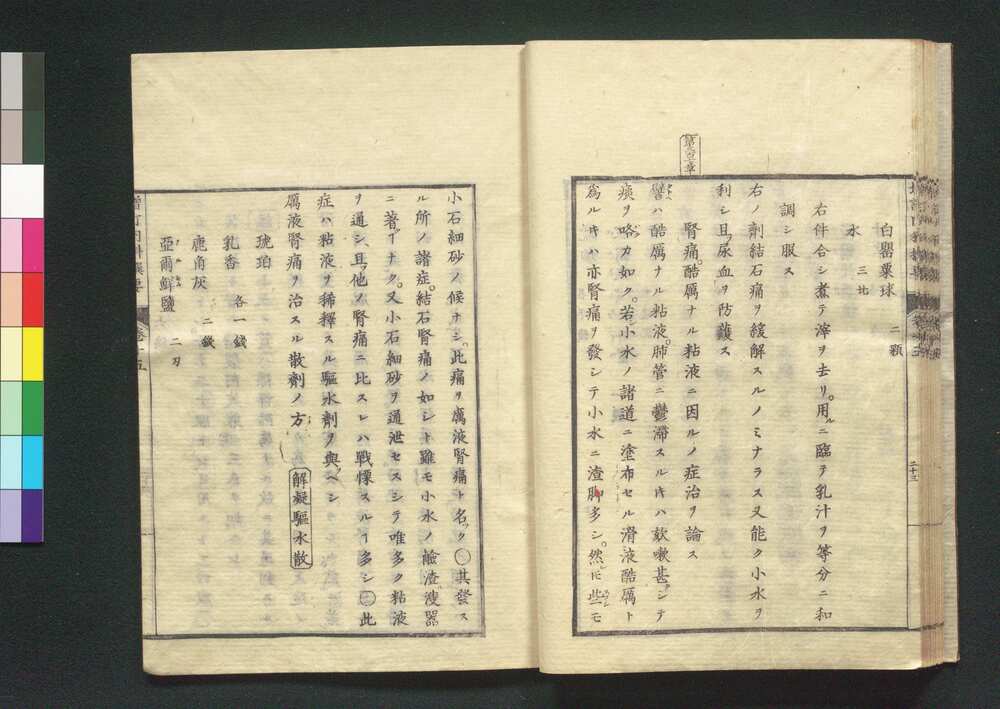 白罌粟球 二顆
水 三比
右件合シ煮テ滓ヲ去リ。用ルニ臨テ乳汁ヲ等分ニ和
調シ服ス
右ノ劑結石痛ヲ緩解スルノミナラス又能ク小水ヲ
利シ且ツ尿血ヲ防護ス
第四章
腎痛。酷厲ナル粘液ニ因ルノ症治ヲ論ス
譬ハ酷厲ナル粘液。肺管ニ鬱滞スルキハ欬嗽甚シテ
痰ヲ咯カ如ク。若小水ノ諸道ニ塗布セル滑液酷厲ト
爲ルキハ亦腎痛ヲ發シテ小水ニ渣脚多シ。然𪜈些モ
二十三
小石細砂ノ候ナシ。此痛ヲ厲液腎痛ト名ク〇其發ス
ル所ノ諸症。結石腎痛ノ如シト雖モ小水ノ鹼渣溲器
ニ著ヿナク。又小石細砂ヲ通泄セスシテ唯多ク粘液
ヲ通シ、且他ノ腎痛ニ比スレハ戰慄スルヿ多シ〇此
症ハ粘液ヲ稀釋スル驅水劑ヲ與ヘシ
厲液腎痛ヲ治スル散劑ノ方 解凝驅水散
琥珀
乳香 各一錢
鹿角灰 二錢
亞爾鮮鹽 二刃